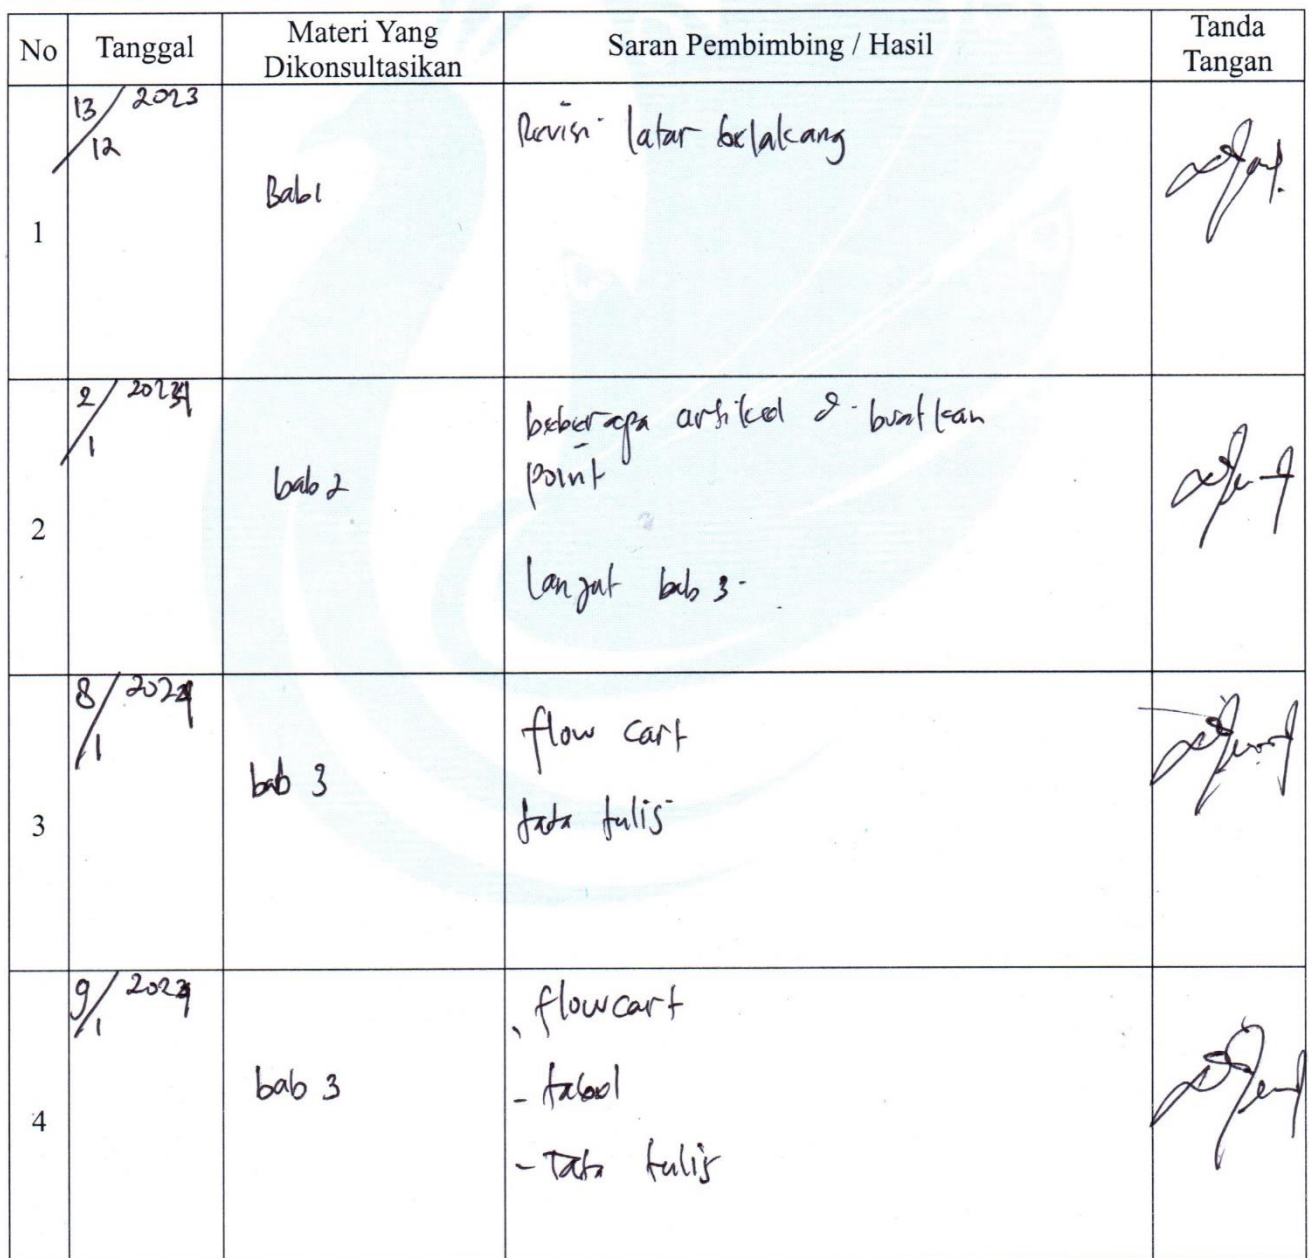 No Tanggal Materi Yang Dikonsultasikan Saran Pembimbing / Hasil Tanda Tangan
13/12 2023
Revisi latar belakang
Bab 1
1
2/1 2024
beberapa artikel di buatkan
point
bab 2
2
lanjut bab 3.
8/1 2024
flow cart
bab 3
tata tulis
3
9/1 2024
- flowcart
bab 3
- tabel
4
- Tata tulis